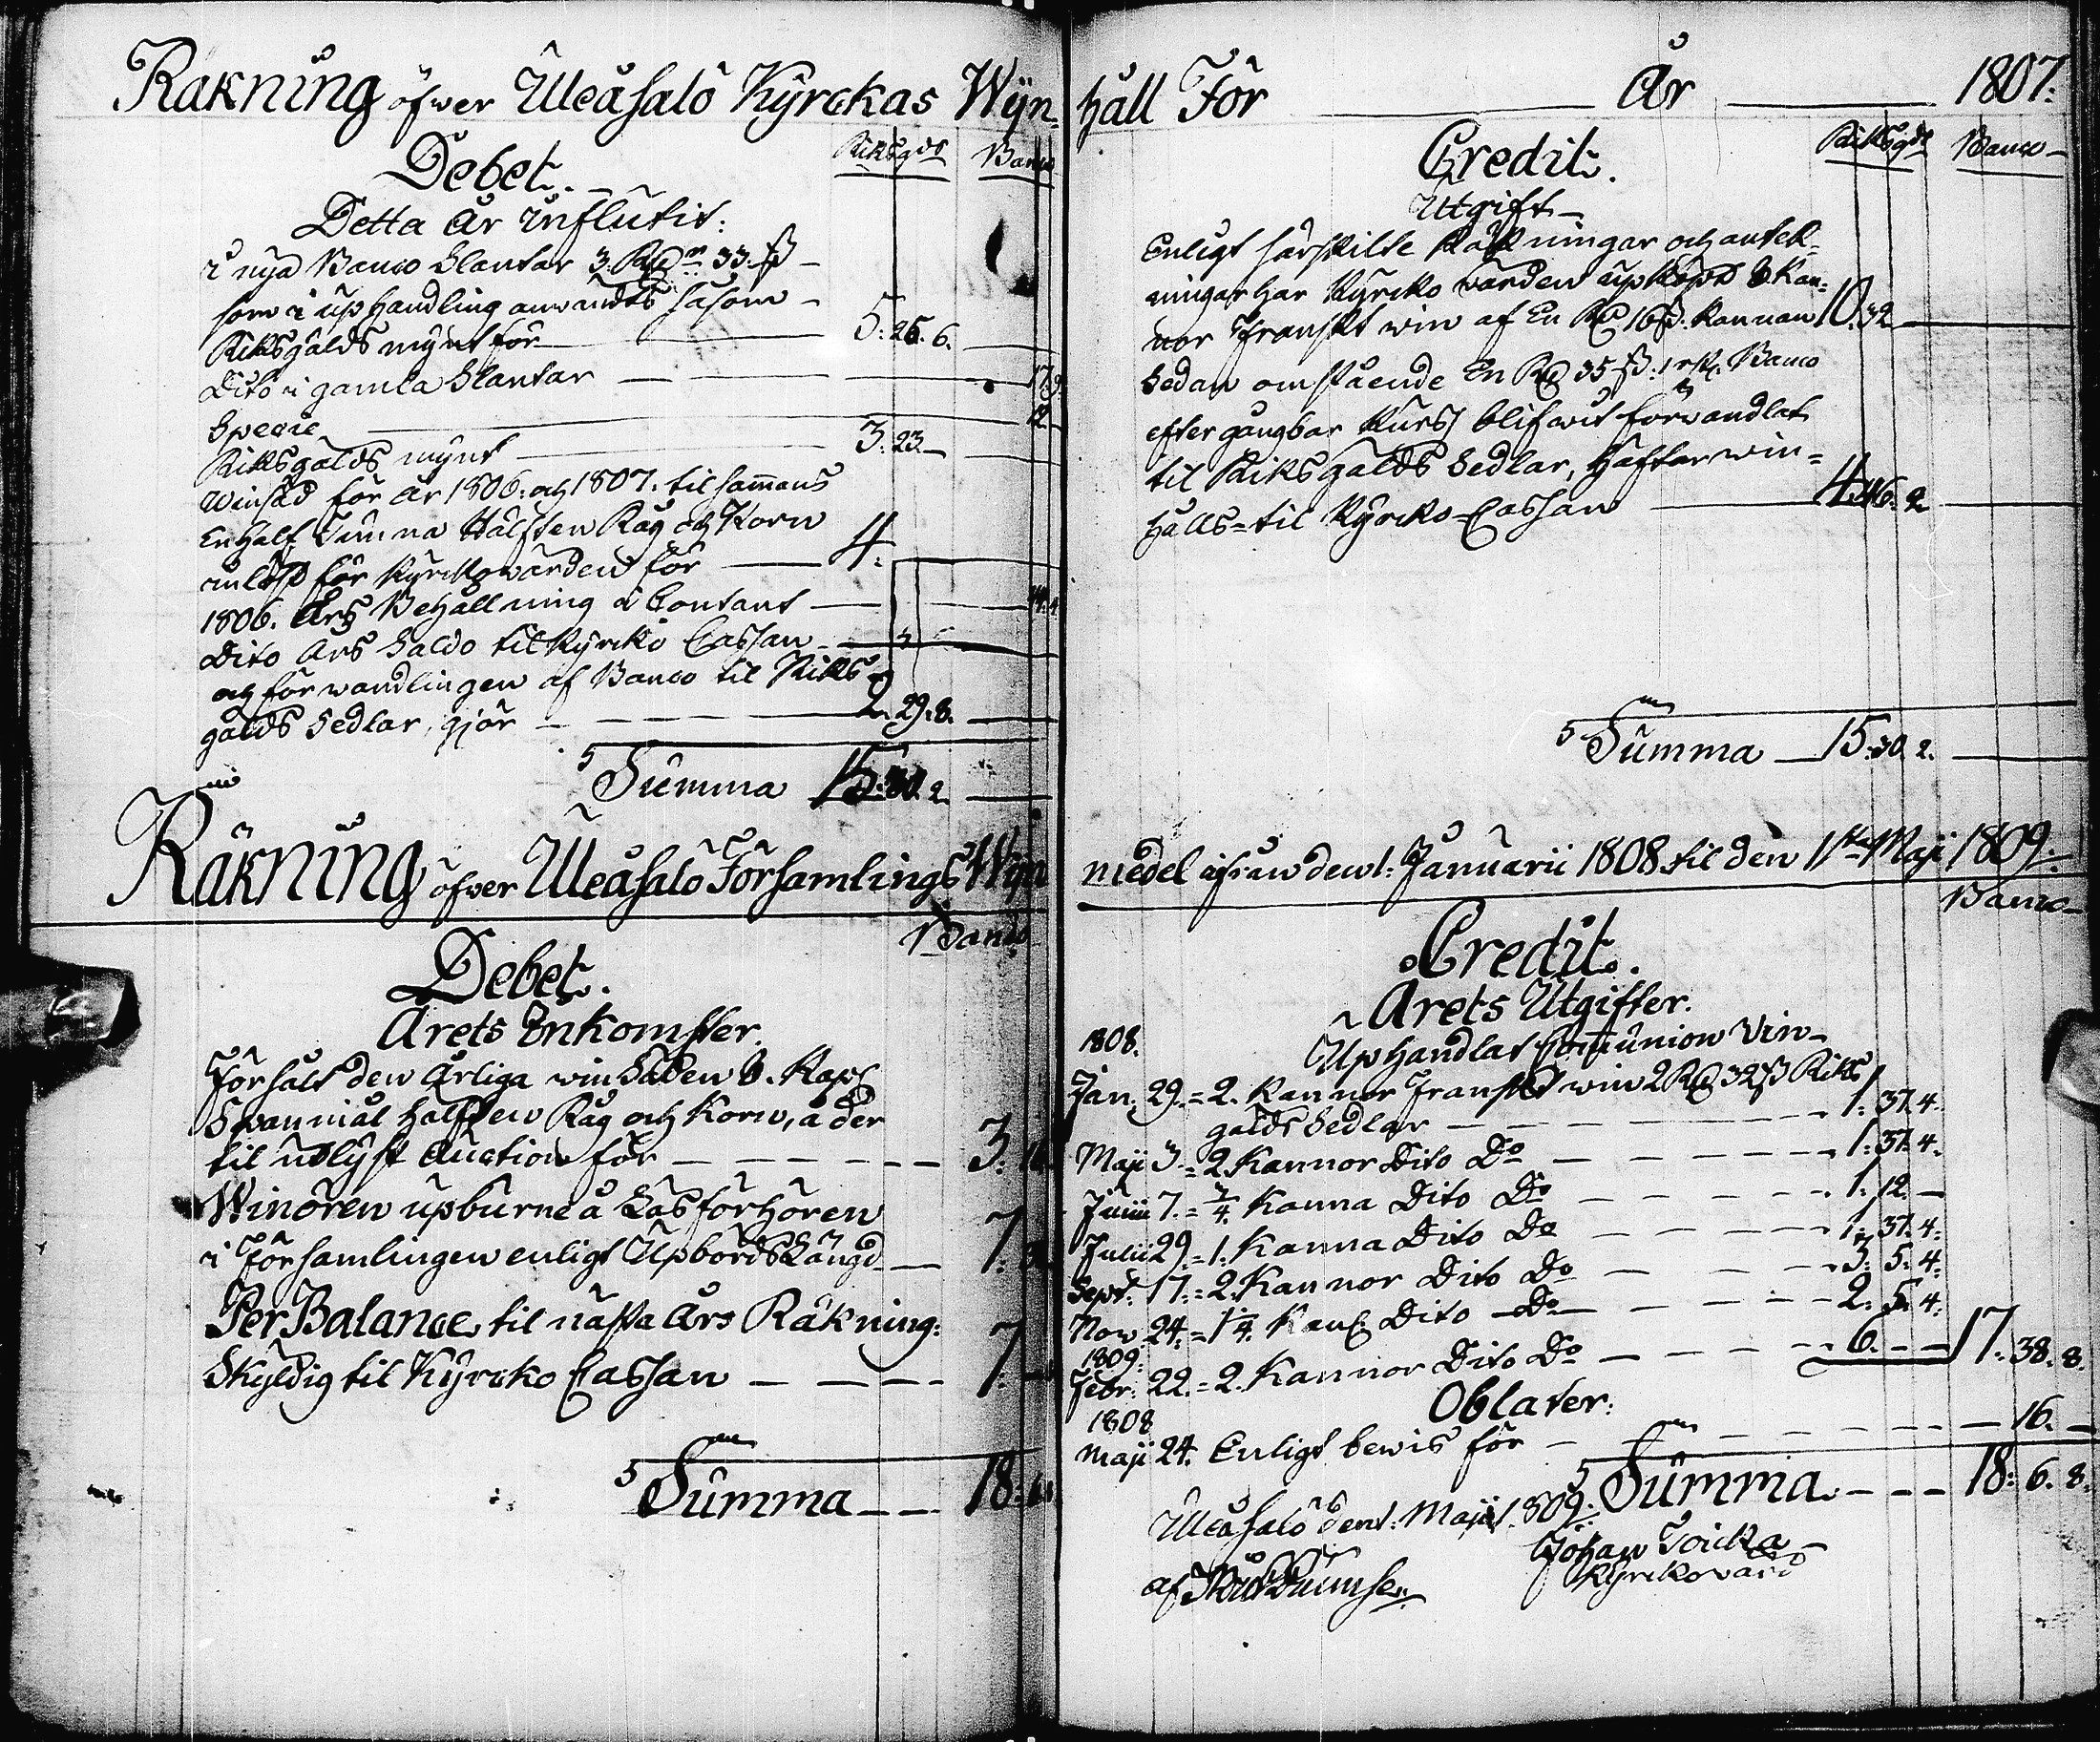 Räkning öfwer Uleåsalo Kyrckas Wijn
Debet.
Riksgds Banco
Detta År influtit:
i nya Banco Slantar 3. Rd 33. ß
som i uphandling anwändts såsom
Riksgälds mynt för 5: 25. 6.
Dito i gamla Slantar 17. 9.
Specie 12
Riksgälds mynt 3: 23.
Winsäd för år 1806. och 1807. tilsamans
En half Tunna Hälften Råg och Korn
inlöst för Kyrckowärden för 4:
1806. Års Behållning i Contant
Dito Års Saldo til Kyrcko Cassan
och förwandlingen af Banco til Riks
gälds Sedlar, gjör 2. 29. 8.
Summa 15: 30. 2.
Räkning öfwer Uleåsalo Församlings Wijn
Banco
Debet.
Årets Inkomster.
Försålt den Årliga winsäden
Spanmål hälften Råg och Korn, å der
til utlyst Auction för 3: 16
Winören upburne å Läsförhören
i Församlingen enligt Upbörds Längd 7:
Per Balance til nästa Års Räkning:
Skyldig til Kyrcko Cassan 7:
Summa 18:
håll För År 1807:
Credit.
Riksgds Banco
Utgift
Enligt särskilte Räkningar och antek-
ningar har Kyrcko wärden upköpt 8 Kan-
nor Franskt win af En Rd 16 ß. kannan 10. 32
Sedan omstående En Rd 35 ß. 1 rst. Banco
efter gångbar Kurs blifwit förwandlat
til Riksgälds Sedlar, häftar win-
hålls- til Kyrcko Cassan 4. 46. 2
Summa 15. 30. 2.
medel ifrån den 1: Januarii 1808 til den 1sta Maji 1809.
Banco
Credit.
Årets Utgifter.
1808. Uphandlat Communion Vin
Jan. 29. = 2. Kannor Franskt win 2 Rd 32 ß Riks
gälds Sedlar 1: 37. 4.
Maji 3. = 2 Kannor Dito Do 1: 37. 4.
Junii 7. = 3/4. Kanna Dito Do 1. 12.
Julii 29. = 1. Kanna Dito Do 1: 37. 4.
Sept. 17. = 2. Kannor Dito Do 3: 5. 4.
Nov. 24. = 1 1/4. Kan. Dito Do 2. 5. 4.
1809.
Febr. 22. = 2. Kannor Dito Do 6. 17. 38. 8.
Oblater.
1808
Maji 24. Enligt bewis för 16.
Summa 18: 6. 8.
Uleåsalo den 1: Maji 1809.
Johan Toicka
Kyrckovärd
af